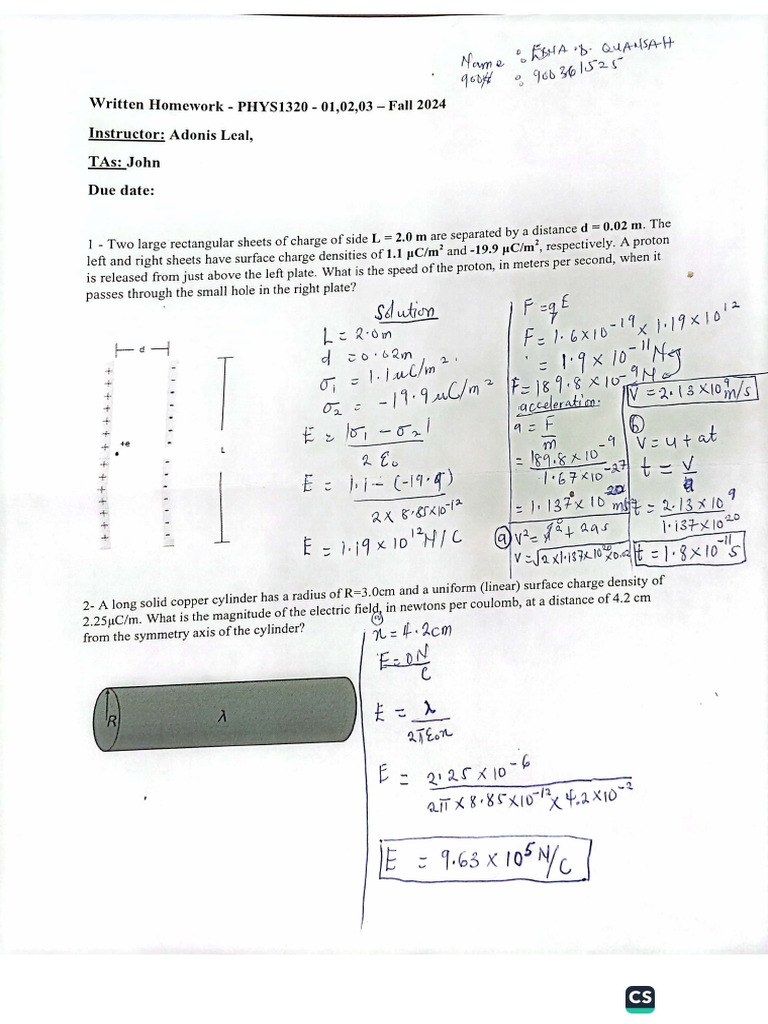 Name : EBHA .B. QUANSAH
900# : 900361525
Written Homework - PHYS1320 - 01,02,03 – Fall 2024
Instructor: Adonis Leal,
TAs: John
Due date:
1 - Two large rectangular sheets of charge of side L = 2.0 m are separated by a distance d = 0.02 m. The
left and right sheets have surface charge densities of 1.1 µC/m² and -19.9 µC/m², respectively. A proton
is released from just above the left plate. What is the speed of the proton, in meters per second, when it
passes through the small hole in the right plate?
d
+e
L
Solution
L = 2.0m
d = 0.02m
σ₁ = 1.1 µC/m²
σ₂ = -19.9 µC/m²
E = |σ₁ - σ₂|
2 ε₀
E = 1.1 - (-19.9)
2 × 8.85×10⁻¹²
E = 1.19 × 10¹² N/C
F = qE
F = 1.6×10⁻¹⁹ × 1.19×10¹²
= 1.9 × 10⁻¹¹ N
F = 189.8 × 10⁻⁹ N
acceleration:
a = F
m
= 189.8 × 10⁻⁹
1.67 × 10⁻²⁷
= 1.137 × 10²⁰ m
(a) V² = u² + 2as
V = √2×1.137×10²⁰×0.02
V = 2.13 × 10⁹ m/s
(b)
V = u + at
t = V
a
t = 2.13 × 10⁹
1.137×10²⁰
t = 1.8 × 10⁻¹¹ s
2- A long solid copper cylinder has a radius of R=3.0cm and a uniform (linear) surface charge density of
2.25µC/m. What is the magnitude of the electric field, in newtons per coulomb, at a distance of 4.2 cm
from the symmetry axis of the cylinder?
R
λ
r = 4.2cm
E = 0 N
C
E = λ
2πε₀r
E = 2.25 × 10⁻⁶
2π × 8.85×10⁻¹² × 4.2×10⁻²
E = 9.63 × 10⁵ N/C
CS